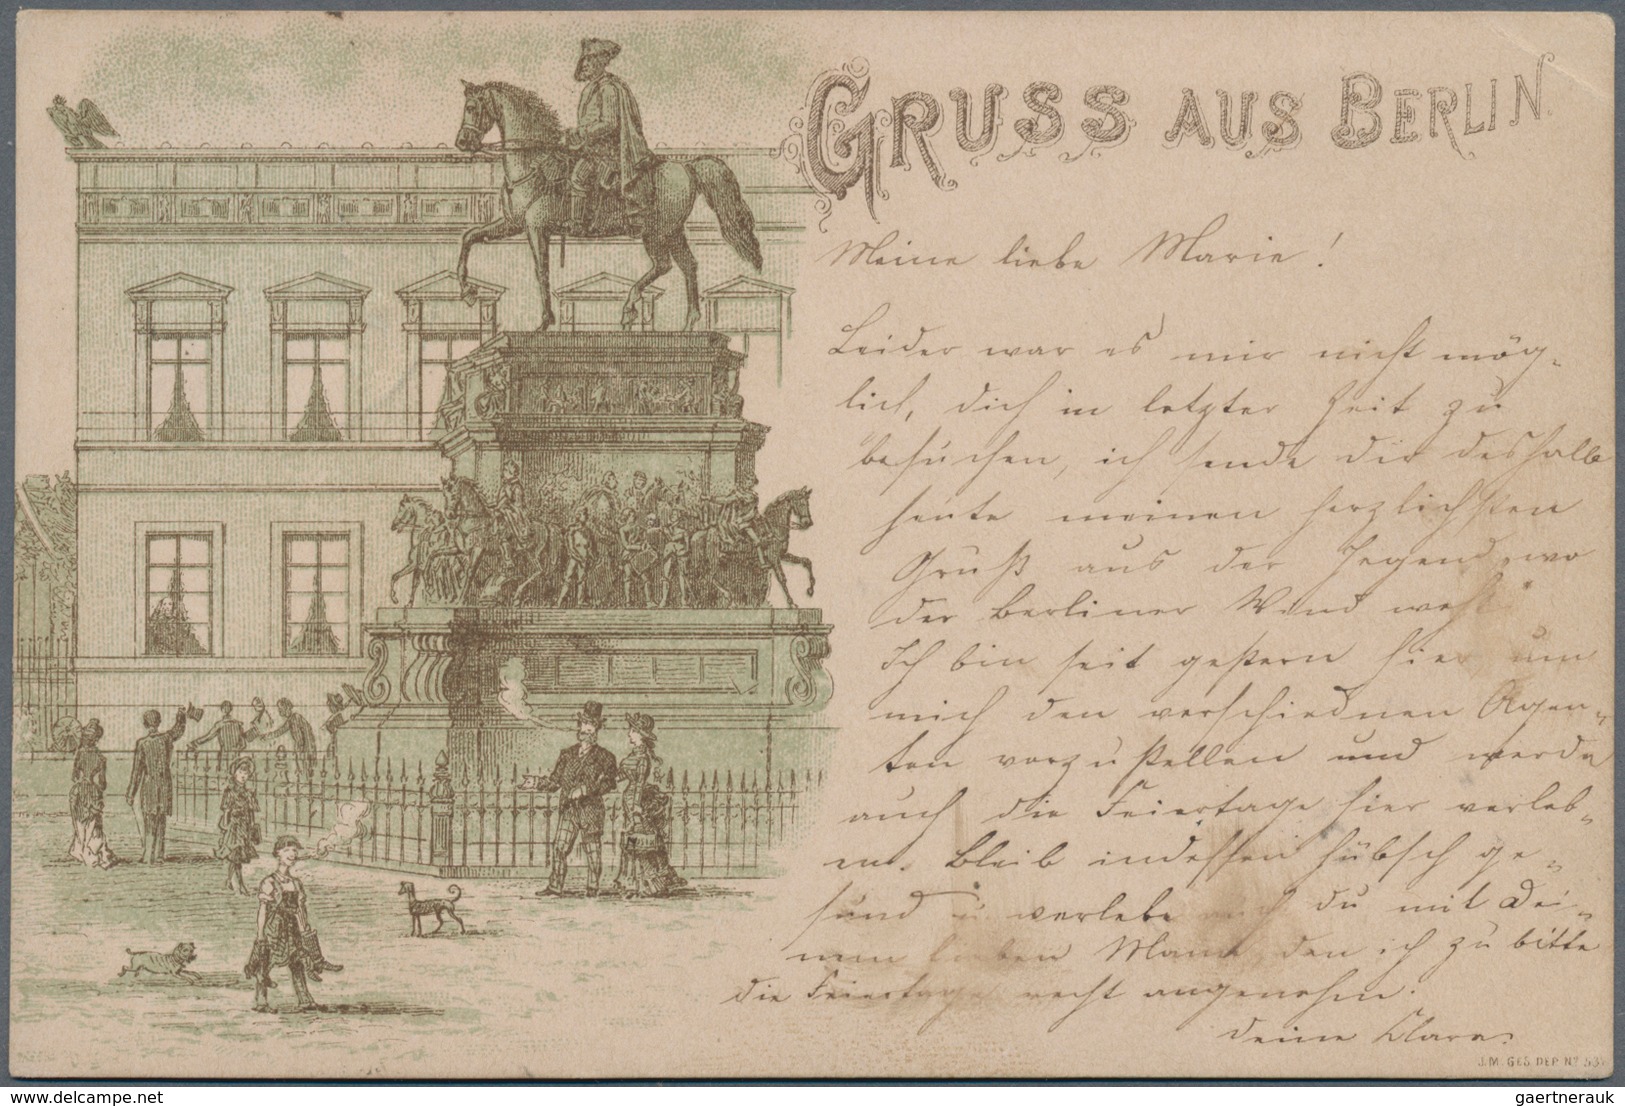 GRUSS AUS BERLIN.
Meine liebe Marie!
Leider war es mir nicht mög-
lich, dich in letzter Zeit zu
besuchen, ich sende dir deshalb
heute meinen herzlichsten
Gruß aus der Gegend, wo
der Berliner Wind weht
Ich bin seit gestern hier um
mich den verschiednen Agen-
ten vorzustellen und werde
auch die Feiertage hier verleb-
en. Bleib indessen hübsch ge-
sund u verlebe auch du mit Dei-
nen lieben den ich zu bitte
die Feiertage recht angenehm.
deine Clara.
J.M. GES. DEP. No 53
delcampe.net
gaertnerauk